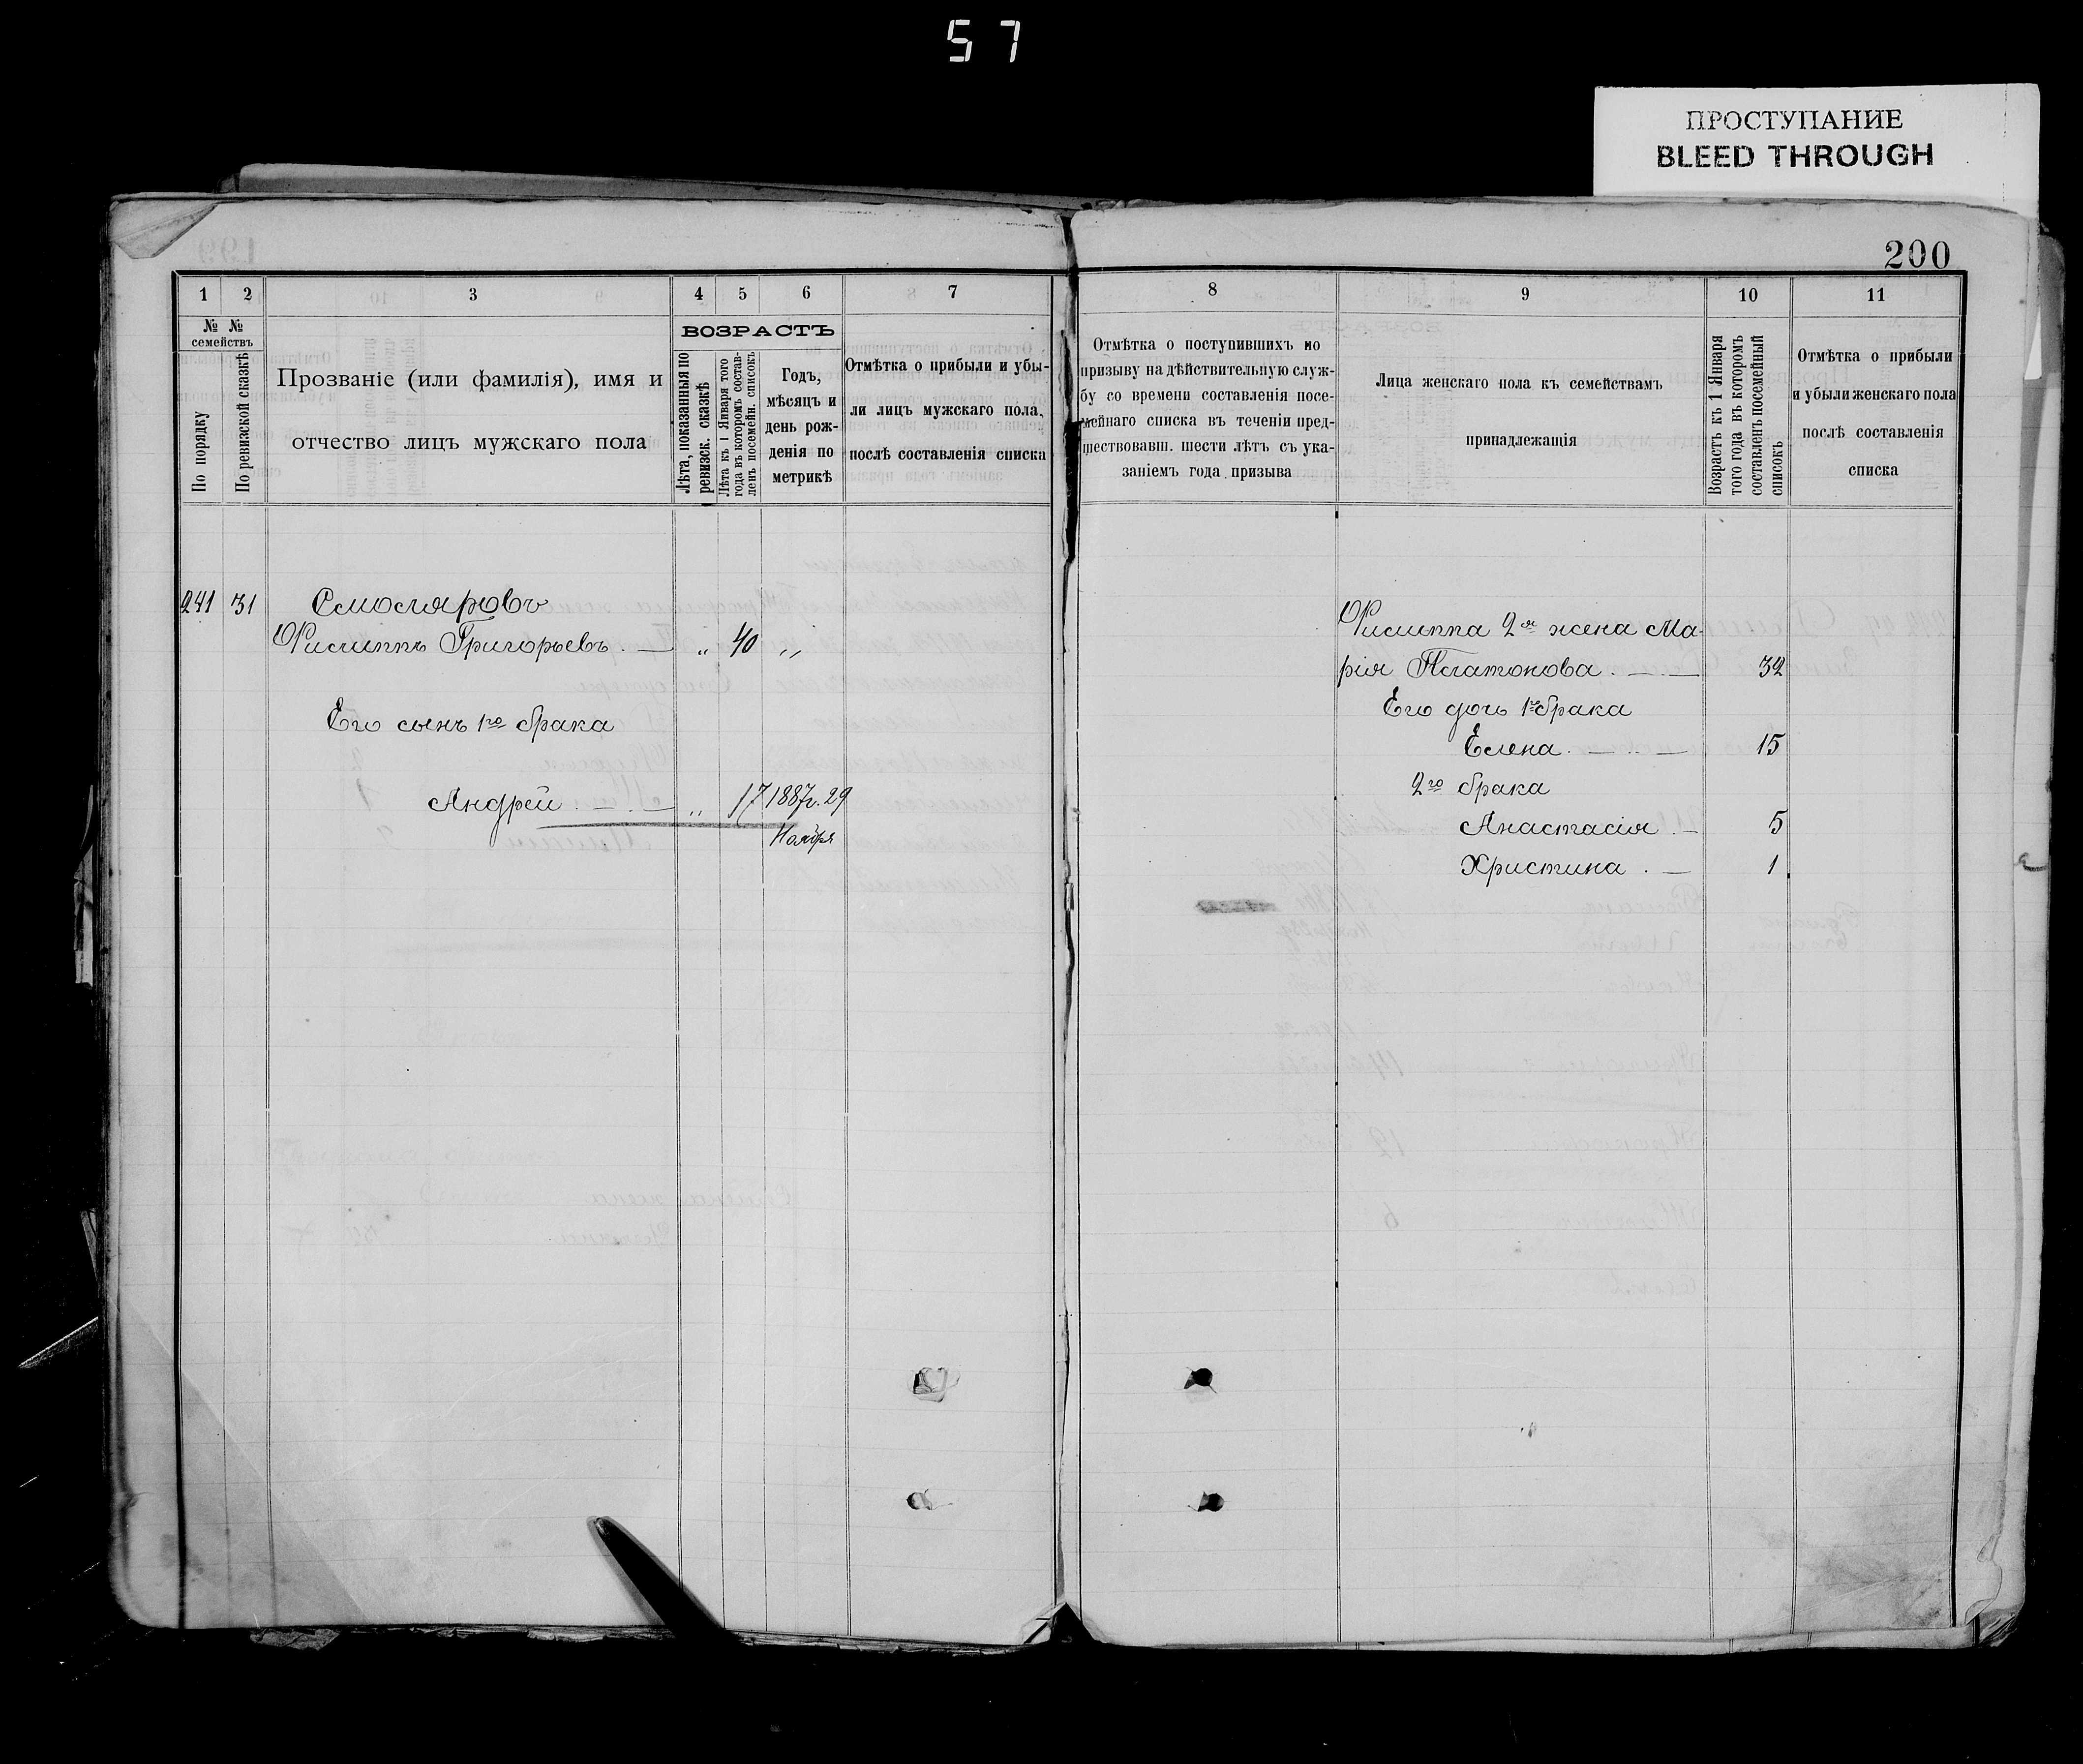 57
ПРОСТУПАНИЕ
BLEED THROUGH
200
1 2 3 4 5 6 7
№ № семействъ
По порядку
По ревизской сказкѣ
Прозваніе (или фамилія), имя и
отчество лицъ мужскаго пола
ВОЗРАСТЪ
Лѣта, показанныя по
ревизск. сказкѣ
Лѣта къ 1 Января того
года въ которомъ состав-
ленъ посемейн. списокъ
Годъ,
мѣсяцъ и
день рож-
денія по
метрикѣ
Отмѣтка о прибыли и убы-
ли лицъ мужскаго пола,
послѣ составленія списка
241 31 Смоляровъ
Филиппъ Григорьевъ . — „ 40 „
Его сынъ 1го брака
Андрей . — . — „ 17 1887г. 29
Ноября
8 9 10 11
Отмѣтка о поступившихъ по
призыву на дѣйствительную служ-
бу со времени составленія посе-
мейнаго списка въ теченіи пред-
шествовавш. шести лѣтъ съ ука-
заніемъ года призыва
Лица женскаго пола къ семействамъ
принадлежащія
Возрастъ къ 1 Января
того года въ которомъ
составленъ посемейный
списокъ
Отмѣтка о прибыли
и убыли женскаго пола
послѣ составленія
списка
Филиппа 2я жена Ма-
рія Платонова . — . — 32
Его дочь 1го брака
Елена . — . . — 15
2го брака
Анастасія . — 5
Христина . — 1